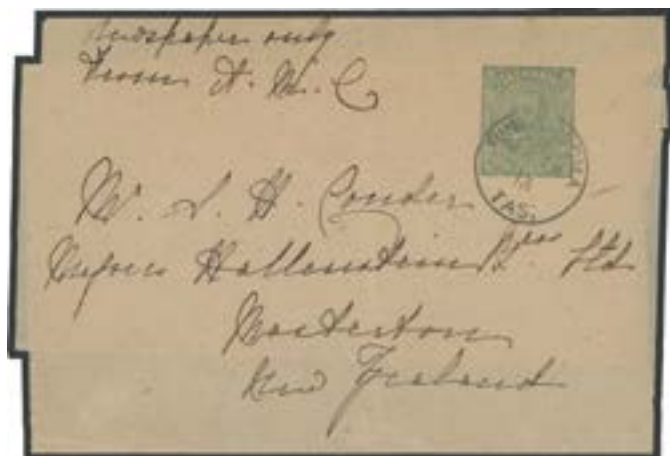 Newspaper only
From A. M. C
Mr. S. H. Conder
Hallenstein Bros Ltd
Masterton
New Zealand
TAS.